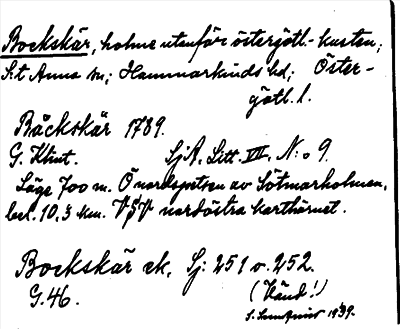 Bockskär, holme utanför östergötl.-kusten;
S:t Anna sn; Hammarkinds hd; Öster-
götl. l.
Båckskär 1789.
G. Klint. SjA. Litt. VII, N:o 9.
Läge 700 m. Ö nordspetsen av Lötmarholmen,
bel. 10,3 km. VSV nordöstra karthörnet.
Bockskär ek. Sj: 251 o. 252.
G. 46. (Vänd!)
S. 1939.